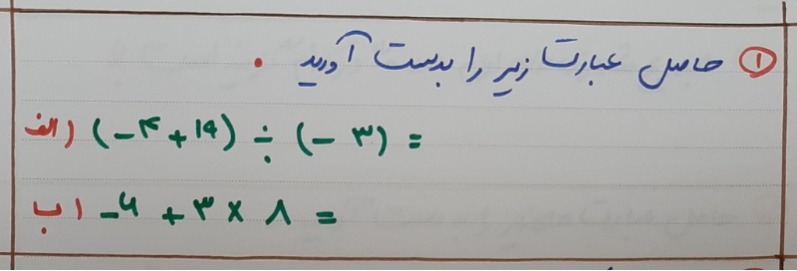 ① حاصل عبارت زیر را بدست آورید .
الف) (-۴+۱۹) ÷ (-۳) =
ب) -۶ + ۳ × ۸ =